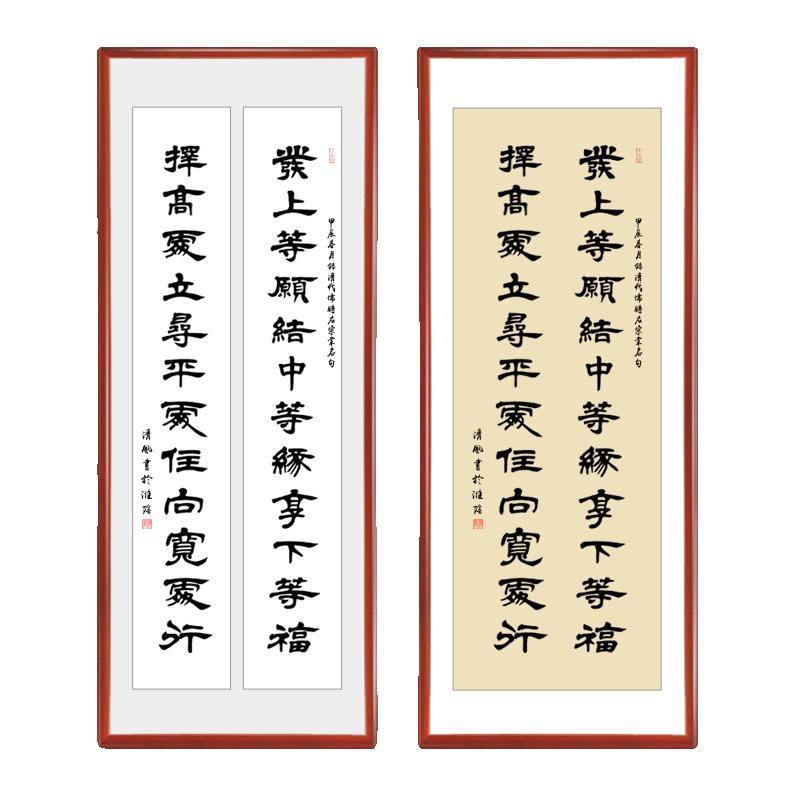 甲辰春月錄清代儒將左宗棠名句
發上等願結中等緣享下等福
擇高處立尋平處住向寬處行
清風書於淮陰
甲辰春月錄清代儒將左宗棠名句
發上等願結中等緣享下等福
擇高處立尋平處住向寬處行
清風書於淮陰